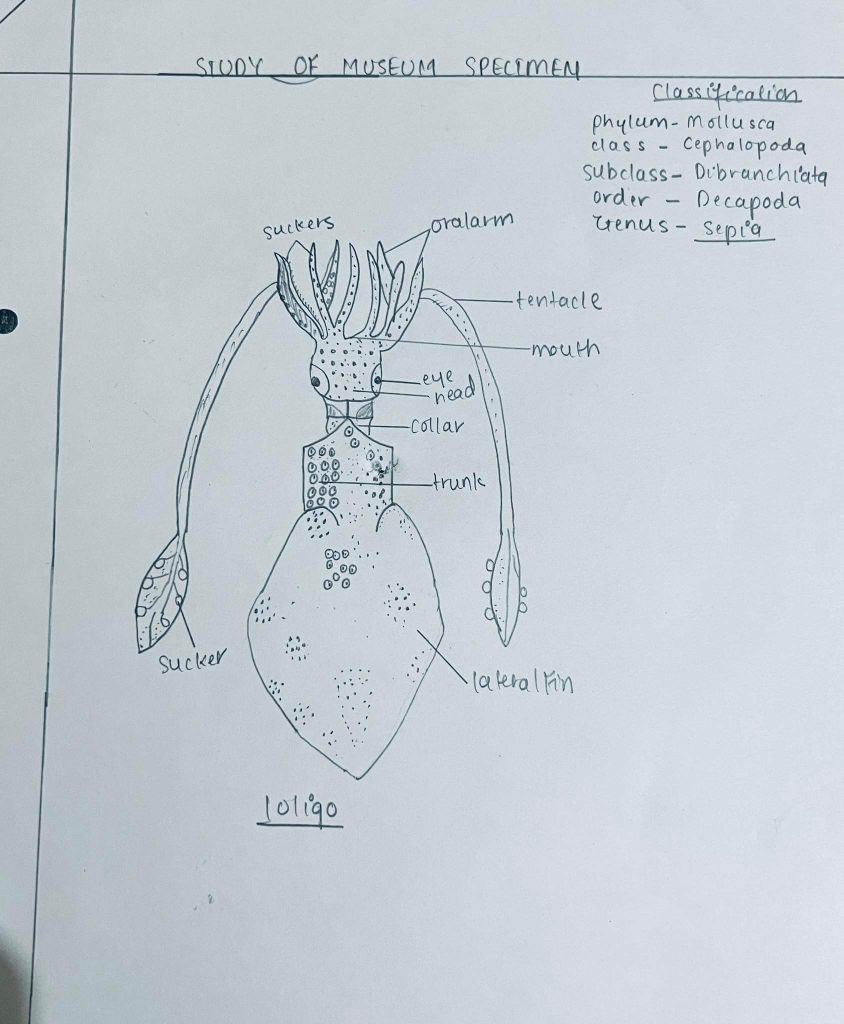 STUDY OF MUSEUM SPECIMEN
Classification
phylum - Mollusca
class - Cephalopoda
subclass - Dibranchiata
order - Decapoda
Genus - Sepia
suckers
oralarm
tentacle
mouth
eye
head
collar
trunk
sucker
lateral fin
loligo